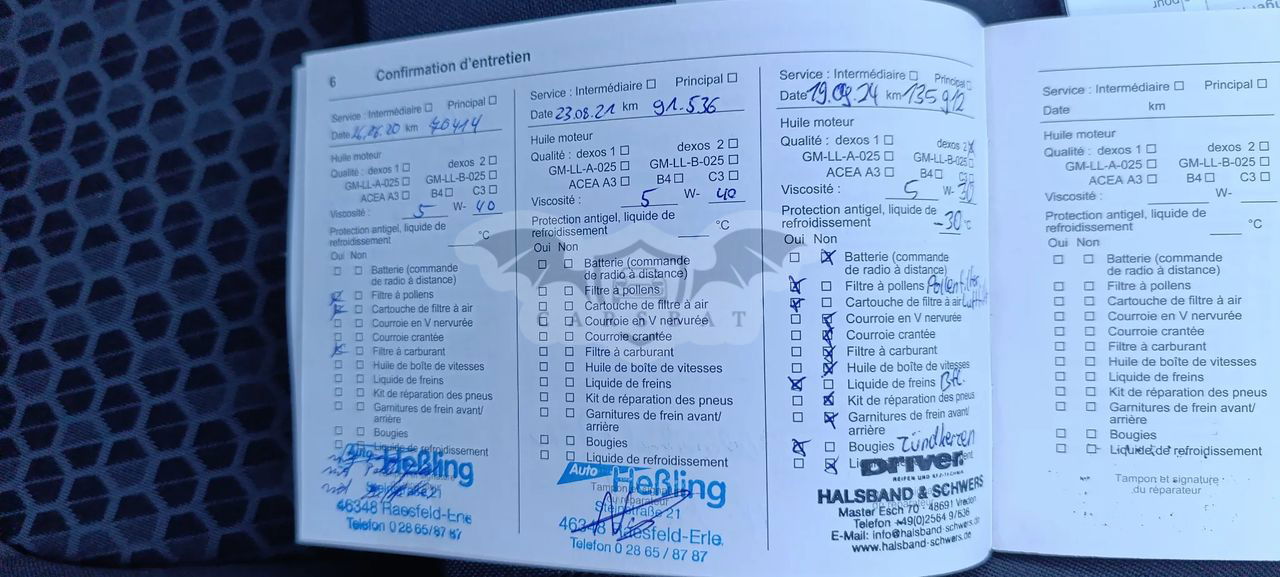 6 Confirmation d'entretien
Service : Intermédiaire Principal
Date 26.08.20 km 70414
Huile moteur
Qualité : dexos 1 dexos 2
GM-LL-A-025 GM-LL-B-025
ACEA A3 B4 C3
Viscosité : 5 W- 40
Protection antigel, liquide de
refroidissement °C
Oui Non
Batterie (commande
de radio à distance)
Filtre à pollens
Cartouche de filtre à air
Courroie en V nervurée
Courroie crantée
Filtre à carburant
Huile de boîte de vitesses
Liquide de freins
Kit de réparation des pneus
Garnitures de frein avant/
arrière
Bougies
Liquide de refroidissement
Auto Heßling
Steinstraße 21
46348 Raesfeld-Erle
Telefon 0 28 65 / 87 87
Service : Intermédiaire Principal
Date 23.08.21 km 91.536
Huile moteur
Qualité : dexos 1 dexos 2
GM-LL-A-025 GM-LL-B-025
ACEA A3 B4 C3
Viscosité : 5 W- 40
Protection antigel, liquide de
refroidissement °C
Oui Non
Batterie (commande
de radio à distance)
Filtre à pollens
Cartouche de filtre à air
Courroie en V nervurée
Courroie crantée
Filtre à carburant
Huile de boîte de vitesses
Liquide de freins
Kit de réparation des pneus
Garnitures de frein avant/
arrière
Bougies
Liquide de refroidissement
Auto Heßling
Steinstraße 21
46348 Raesfeld-Erle
Telefon 0 28 65 / 87 87
Service : Intermédiaire Principal
Date 19.09.24 km 135 912
Huile moteur
Qualité : dexos 1 dexos 2
GM-LL-A-025 GM-LL-B-025
ACEA A3 B4 C3
Viscosité : 5 W- 30
Protection antigel, liquide de
refroidissement -30 °C
Oui Non
Batterie (commande
de radio à distance)
Filtre à pollens Pollenfilter
Cartouche de filtre à air Luftfilt
Courroie en V nervurée
Courroie crantée
Filtre à carburant
Huile de boîte de vitesses
Liquide de freins Bfl.
Kit de réparation des pneus
Garnitures de frein avant/
arrière
Bougies Zündkerzen
DRIVER
REIFEN UND KFZ-TECHNIK
HALSBAND & SCHWERS
Master Esch 70 · 48691 Vreden
Telefon +49(0)2564 9/636
E-Mail: info@halsband-schwers.de
www.halsband-schwers.de
Service : Intermédiaire Principal
Date km
Huile moteur
Qualité : dexos 1 dexos 2
GM-LL-A-025 GM-LL-B-025
ACEA A3 B4 C3
Viscosité : W-
Protection antigel, liquide de
refroidissement °C
Oui Non
Batterie (commande
de radio à distance)
Filtre à pollens
Cartouche de filtre à air
Courroie en V nervurée
Courroie crantée
Filtre à carburant
Huile de boîte de vitesses
Liquide de freins
Kit de réparation des pneus
Garnitures de frein avant/
arrière
Bougies
Liquide de refroidissement
Tampon et signature
du réparateur
CARSBAT